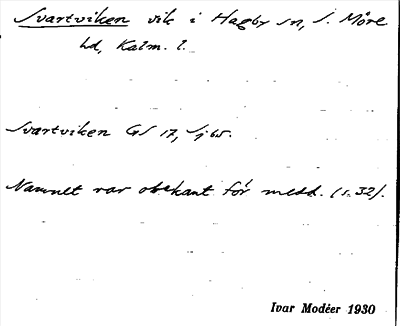 Svartviken vik i Hagby sn, S. Möre
hd, Kalm. l.
Svartviken GS 17, Sjö.
Namnet var obekant för medd. (s. 32).
Ivar Modéer 1930